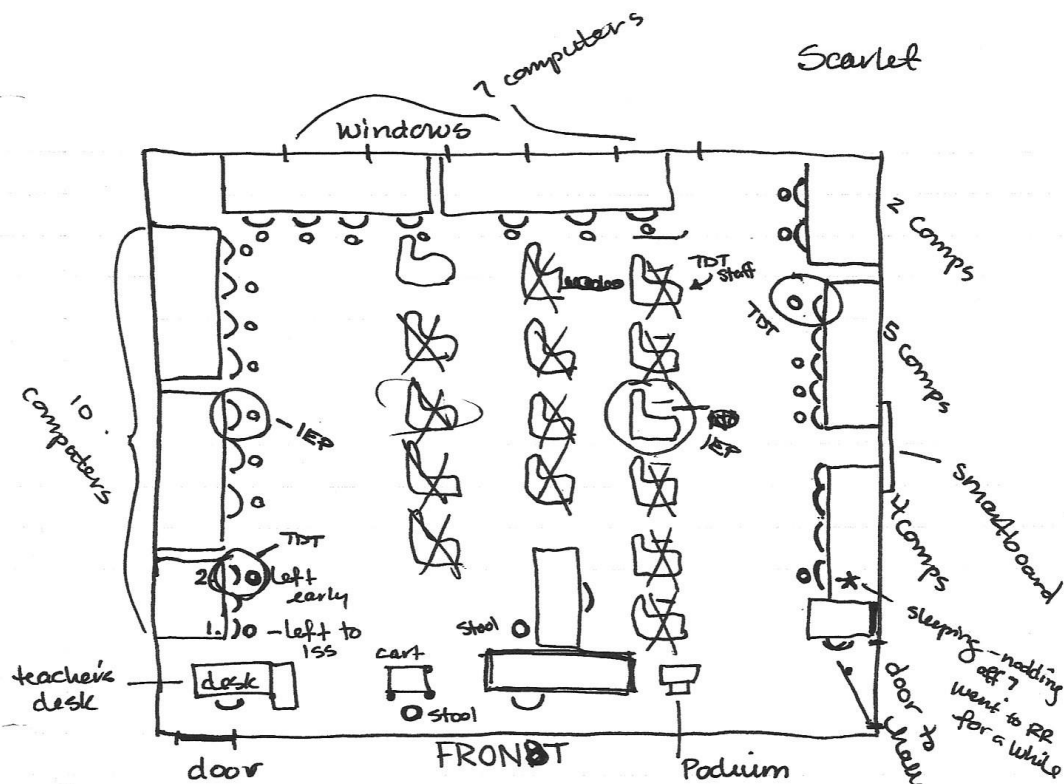 Scarlet
7 computers
windows
2 comps
TDT
Staff
TDT
5 comps
10
computers
IEP
IEP
smartboard
4 comps
TDT
2.
left
early
1.
-left to
ISS
*
sleeping-nodding
off?
went to RR
for a while
stool
cart
stool
teacher's
desk
desk
door to
hall
door
FRONT
Podium